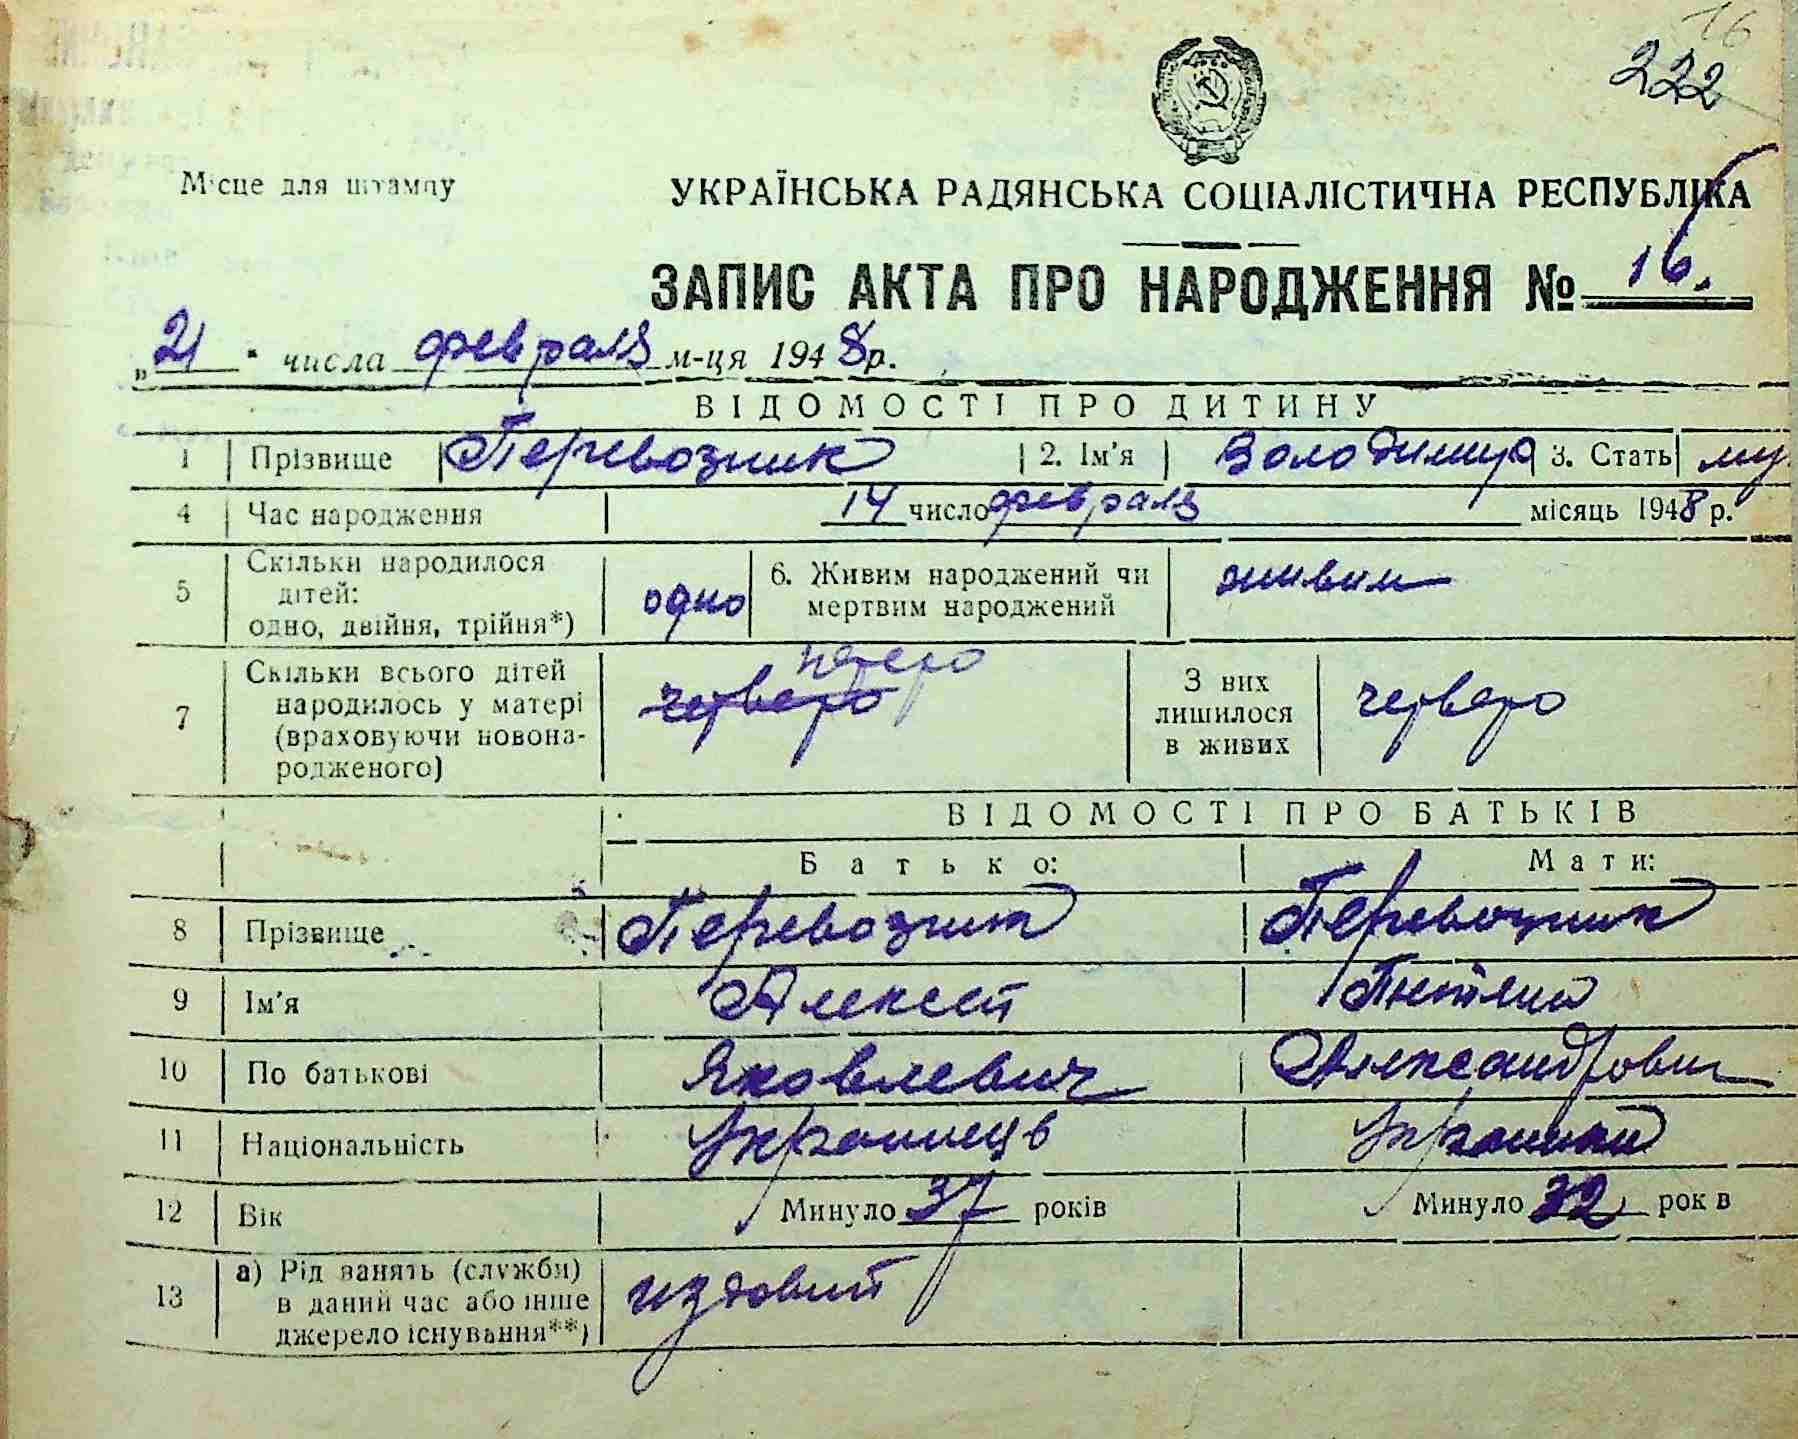 16
222
Місце для штампу
УКРАЇНСЬКА РАДЯНСЬКА СОЦІАЛІСТИЧНА РЕСПУБЛІКА
ЗАПИС АКТА ПРО НАРОДЖЕННЯ № 16.
„21" числа февраля м-ця 1948 р.
ВІДОМОСТІ ПРО ДИТИНУ
1 Прізвище Перевозник 2. Ім'я Володимир 3. Стать му
4 Час народження 14 число февраля місяць 1948 р.
5 Скільки народилося дітей: одно, двійня, трійня*) одно 6. Живим народжений чи мертвим народжений живим
7 Скільки всього дітей народилось у матері (враховуючи новонародженого) четверо пятеро З них лишилося в живих четверо
ВІДОМОСТІ ПРО БАТЬКІВ
Батько: Мати:
8 Прізвище Перевозник Перевозник
9 Ім'я Алексей
10 По батькові Яковлевич Александровн
11 Національність Украинець Украинка
12 Вік Минуло 37 років Минуло 32 рок в
13 а) Рід занять (служби) в даний час або інше джерело існування**)